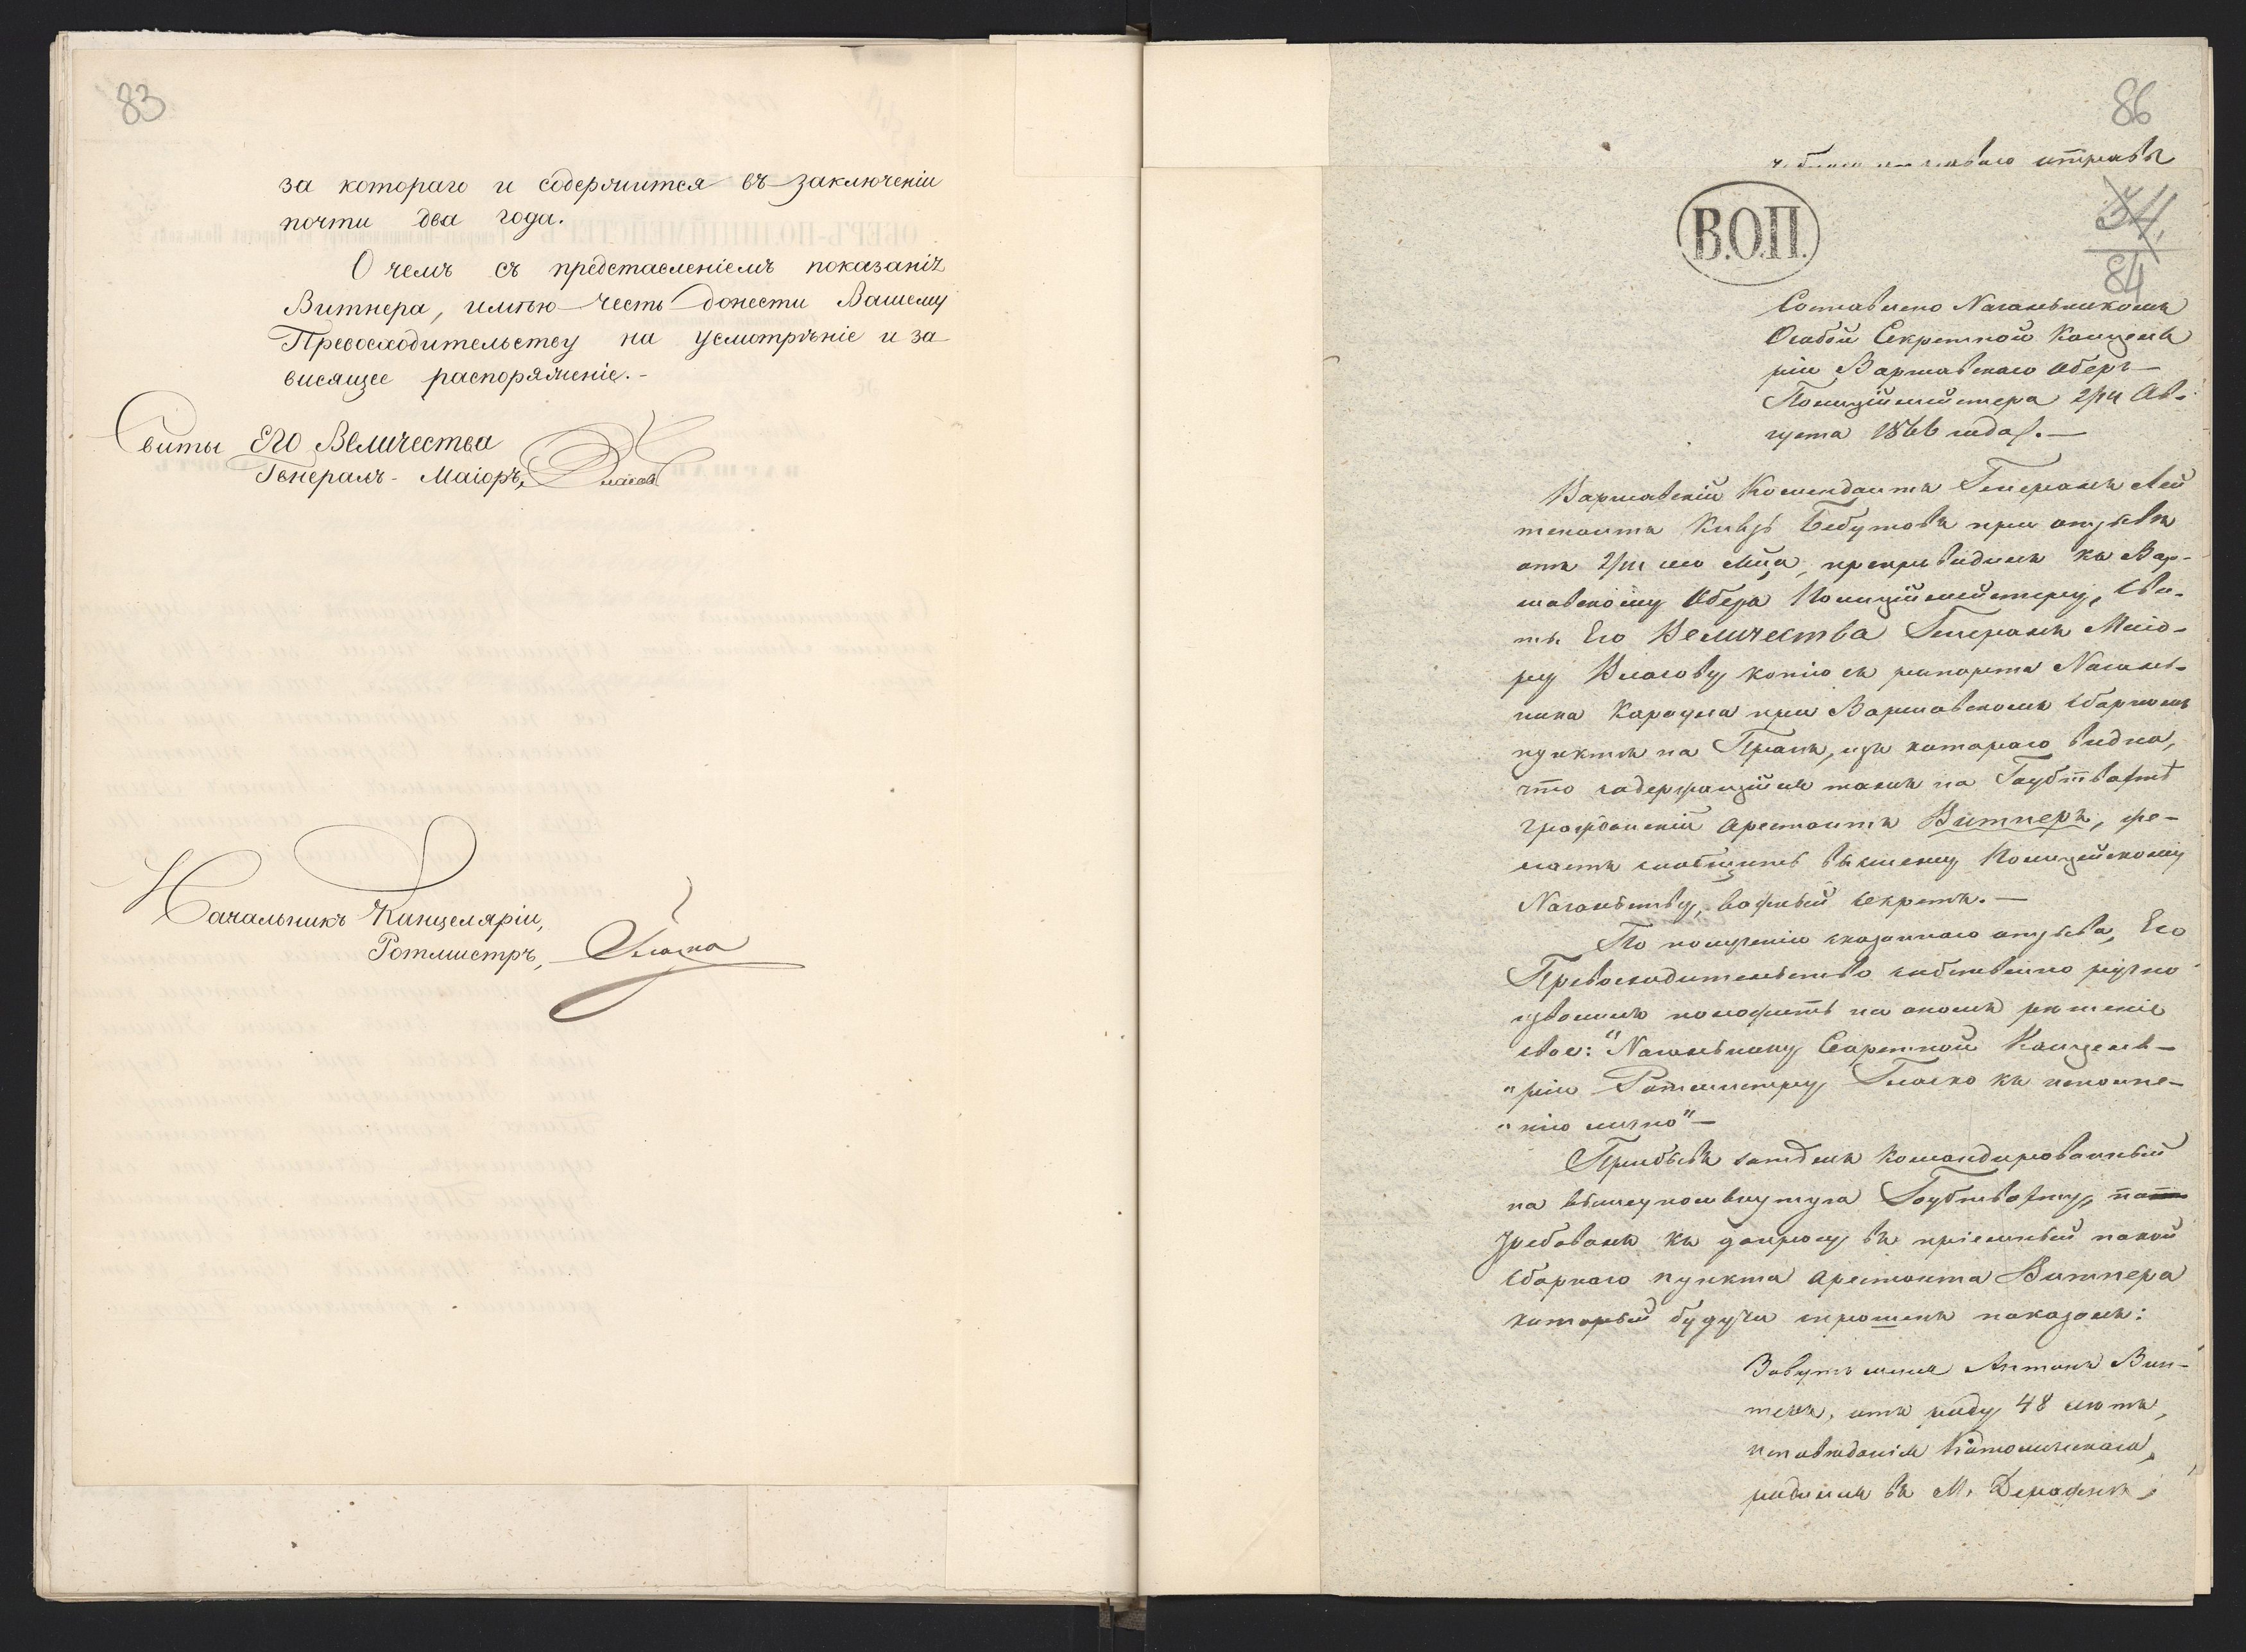 83
за котораго и содержится въ заключеніи
почти два года.
О чемъ съ представленіемъ показанія
Витнера, имѣю честь донести Вашему
Превосходительству на усмотрѣніе и за-
висящее распоряженіе.-
Свиты Его Величества
Генералъ-Маіоръ, Власовъ
Начальникъ Канцеляріи,
Ротмистръ, Гласко
86
В.О.П.
34
84
Составлено Начальникомъ
Особой Секретной Канцеля
ріи Варшавскаго Оберъ-
Полиціймейстера 2/14 Ав-
густа 1866 года.—
Варшавскій Комендантъ Генералъ Лей
тенантъ Князь Бебутовъ при отзывѣ
отъ 2/14 сего М-ца, препроводилъ къ Вар-
шавскому Оберъ Полиціймейстеру, Сви-
ты Его Величества Генералъ Маіо-
ру Власову копію съ рапорта Началь-
ника Караула при Варшавскомъ Сборномъ
пунктѣ на Прагѣ, изъ котораго видно,
что содержащійся тамъ на Гауптвахтѣ
гражданскій арестантъ Витнеръ, же-
лаетъ сообщить высшему Полицейскому
Начальству, важный секретъ.—
По полученію сказаннаго отзыва, Его
Превосходительство собственно ручно
изволилъ положить на ономъ рѣшеніе
свое: "Начальнику Секретной Канцеля-
"ріи Ротмистру Гласко къ исполне-
"нію лично"—
Прибывъ затѣмъ командированный
на вышеупомянутую Гауптвахту, по
требовалъ къ допросу въ пріемный покой
Сборнаго пункта арестанта Витнера
который будучи спрошенъ показалъ:
Зовутъ меня Антонъ Вит-
неръ, отъ роду 48 лѣтъ,
исповѣданія Католическаго,
родился въ М. Деражнѣ,